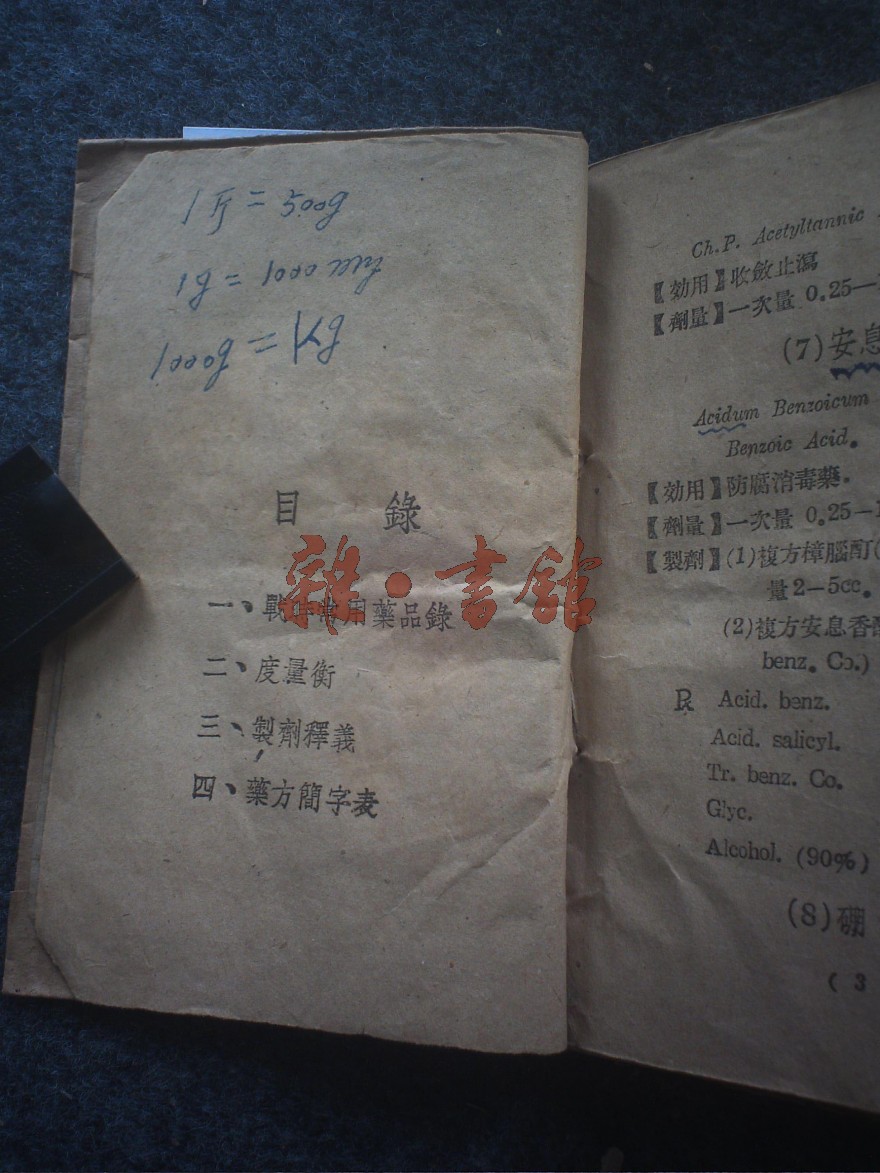 1斤 = 500g
1g = 1000 mg
1000g = 1Kg
目 錄
一、戰時常用藥品錄
二、度量衡
三、製劑釋義
四、藥方簡字表
雜·書館
Ch. P. Acetyltannic
【効用】收斂止瀉
【劑量】一次量 0.25—
(7)安息
Acidum Benzoicum
Benzoic Acid.
【効用】防腐消毒藥.
【劑量】一次量 0.25—
【製劑】(1)複方樟腦酊(
量2—5cc.
(2)複方安息香酸
benz. Co.)
℞ Acid. benz.
Acid. salicyl.
Tr. benz. Co.
Glyc.
Alcohol. (90%)
(8)硼
( 3